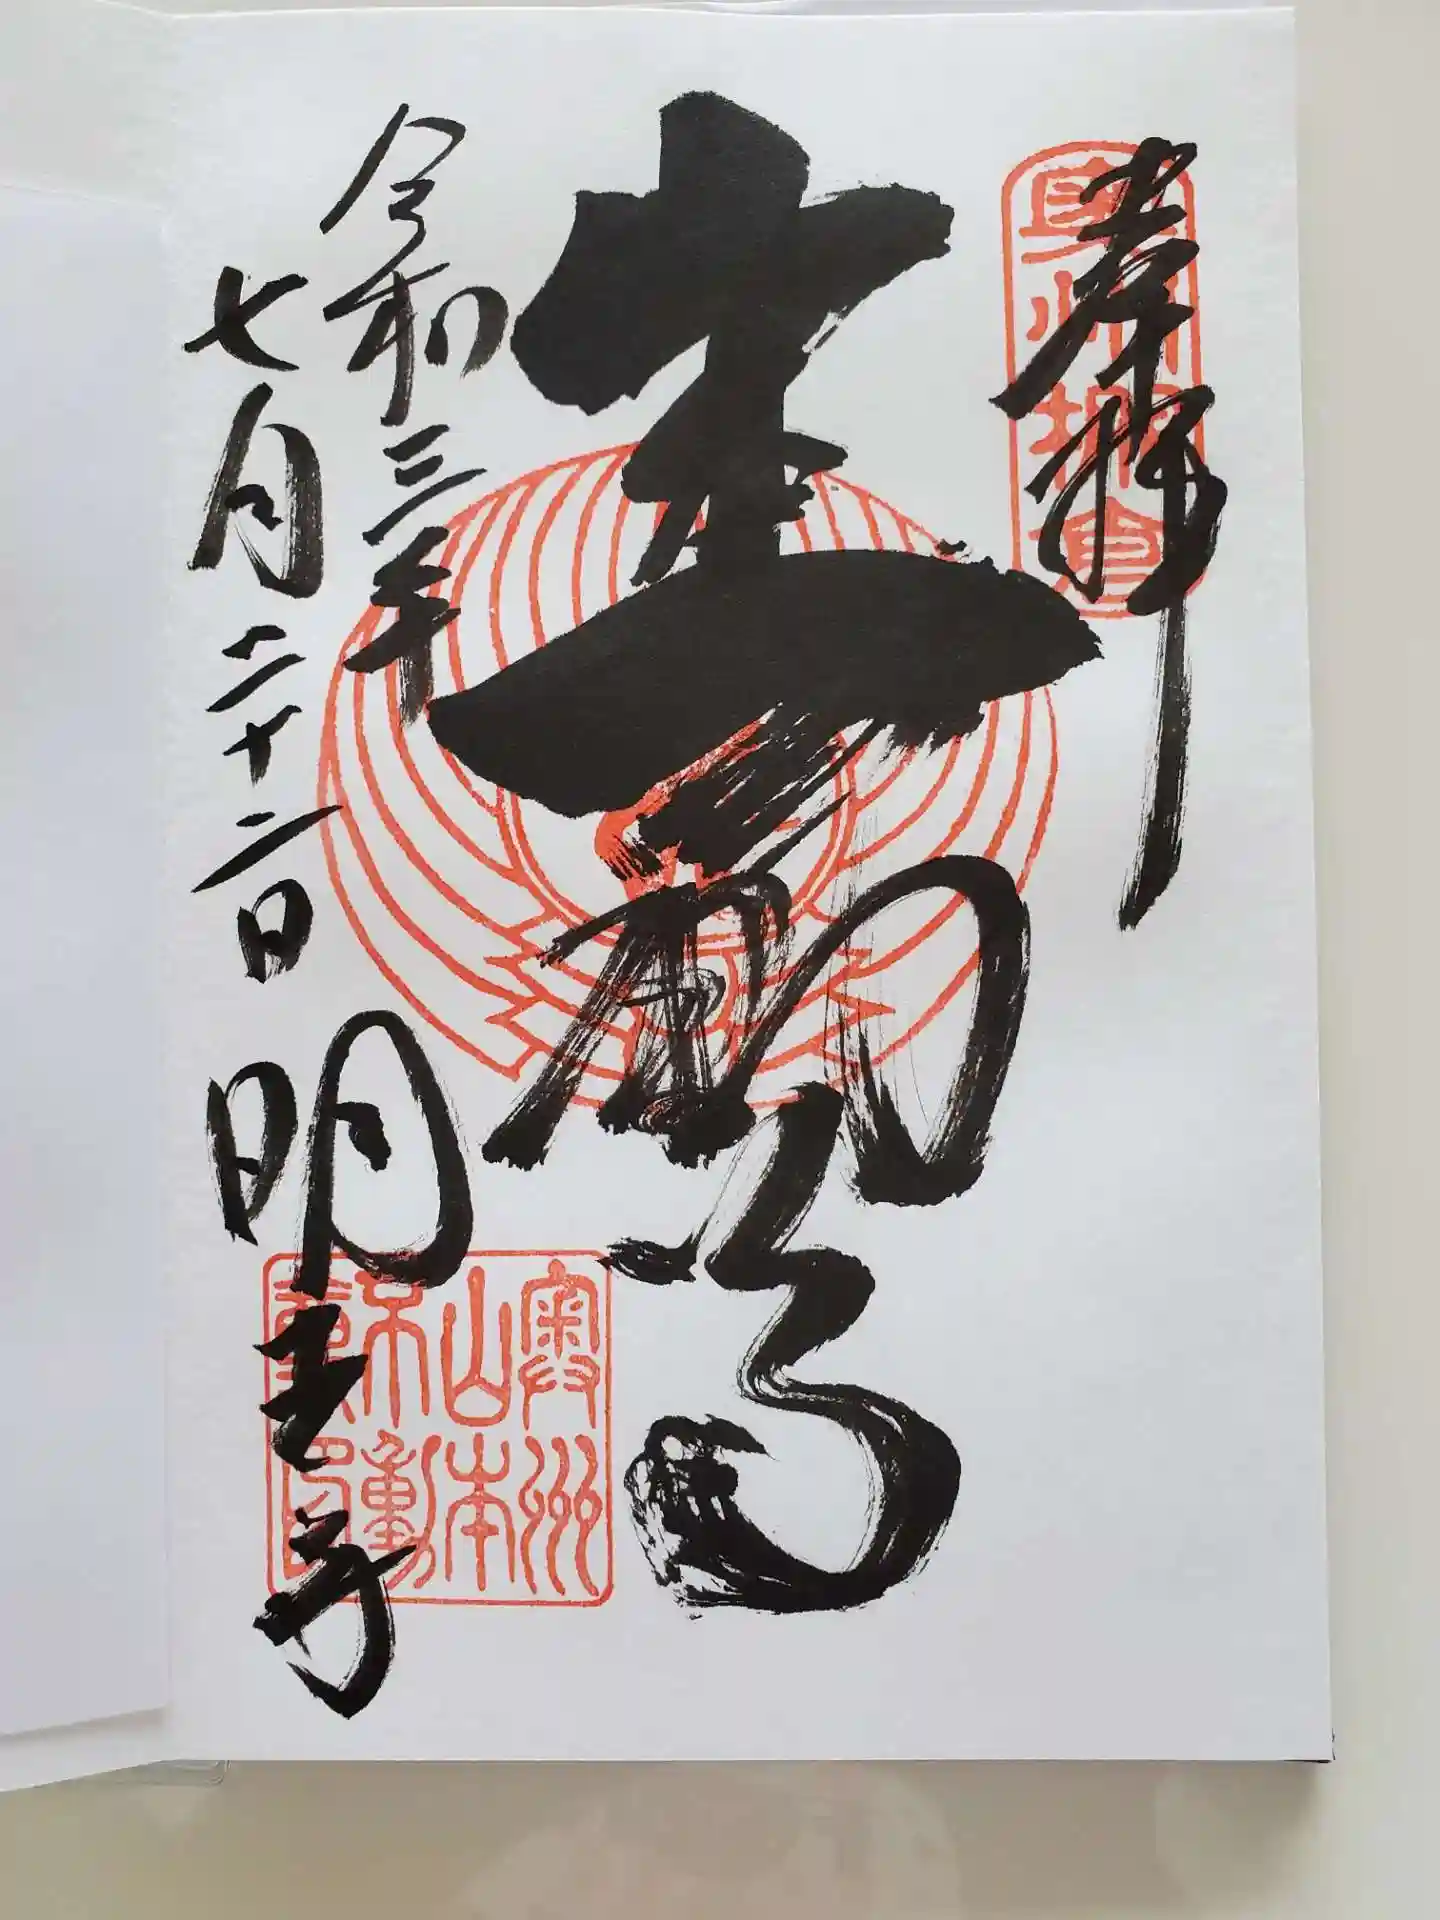 奉拝
奥州棚倉
山本不動尊
令和三年
七月二十二日
明王寺
奥州
山本
不動
尊印